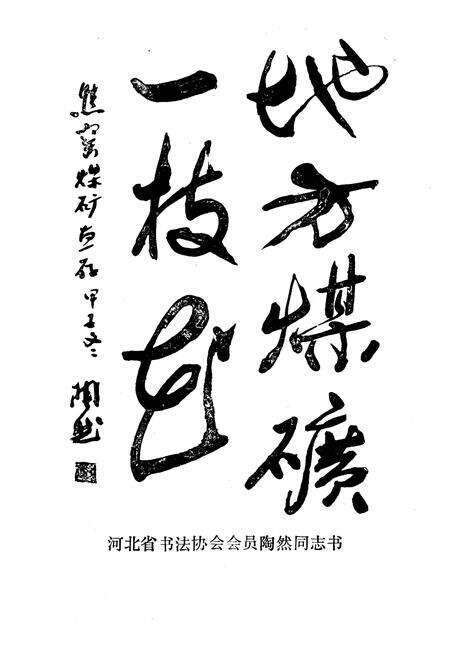 地方煤礦
一枝花
焦窑煤矿惠存 甲子冬 陶然
河北省书法协会会员陶然同志书